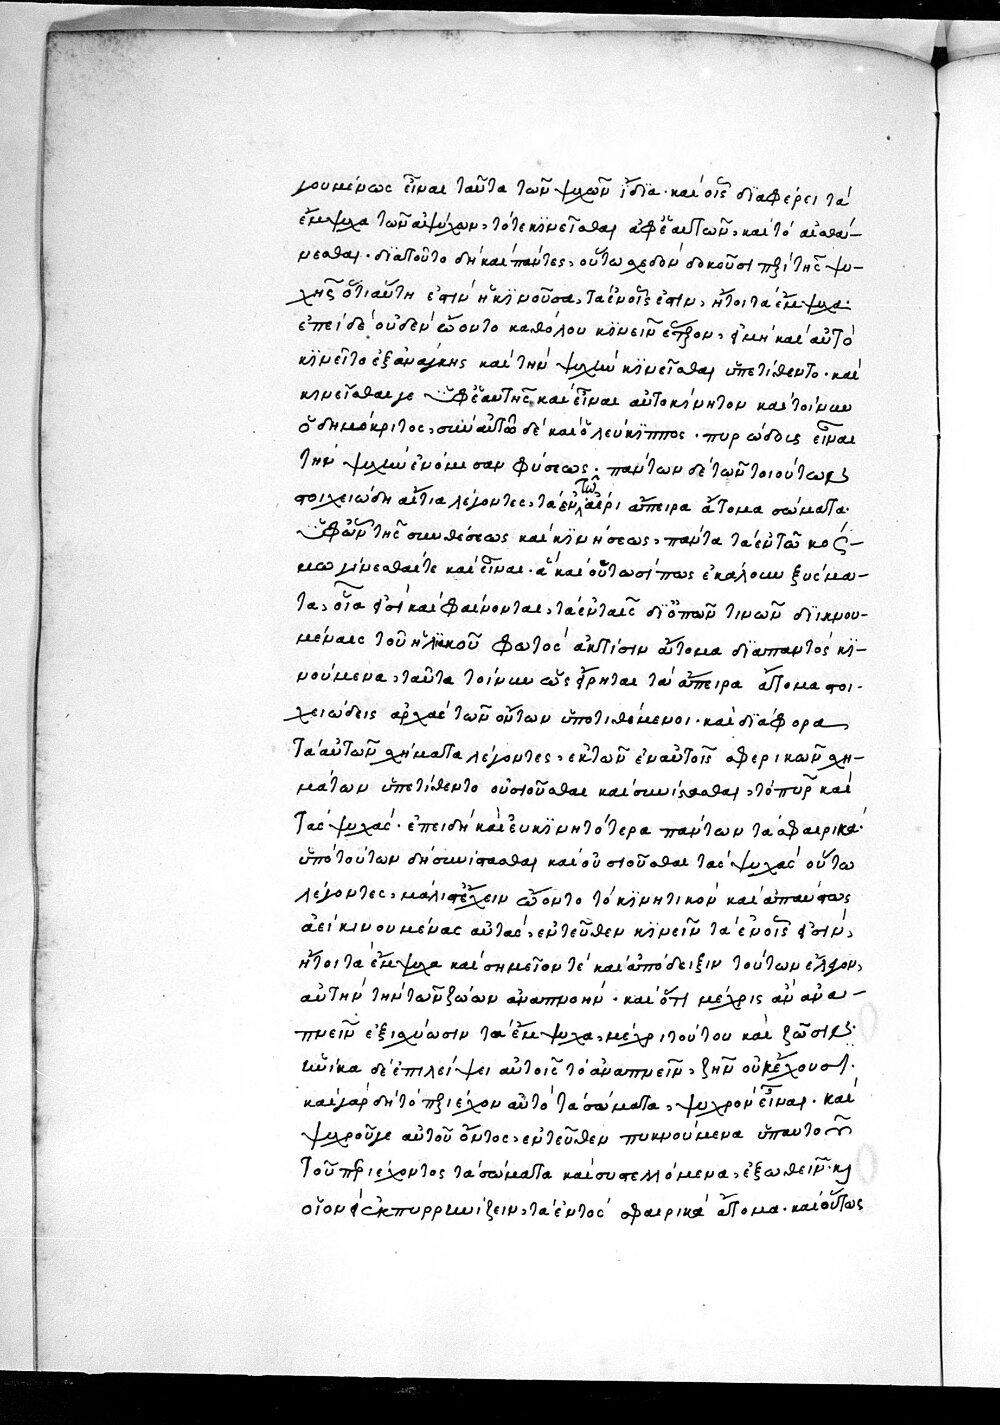 γουμένως εἶναι ταῦτα τῶν ψυχῶν ἴδια· καὶ οἷς διαφέρει τὰ
ἔμψυχα τῶν ἀψύχων, τό τε κινεῖσθαι ἀφ' ἑαυτῶν, καὶ τὸ αἰσθάν-
νεσθαι· διατοῦτο δὴ καὶ πάντες, οὕτω σχεδὸν δοκοῦσι περὶ τῆς ψυ-
χῆς ὅτι αὕτη ἐστὶν ἡ κινοῦσα, τὰ ἐν οἷς ἐστιν, ἤτοι τὰ ἔμψυχα·
ἐπεὶ δὲ οὐδὲν ᾤοντο καθόλου κινεῖν ἕτερον, εἰ μὴ καὶ αὐτὸ
κινεῖτο ἐξ ἀνάγκης καὶ τὴν ψυχὴν κινεῖσθαι ὑπετίθεντο· καὶ
κινεῖσθαί γε ὑφ' ἑαυτῆς καὶ εἶναι αὐτοκίνητον καὶ τοίνυν
ὁ δημόκριτος, σὺν αὐτῷ δὲ καὶ ὁ λεύκιππος· πυρώδεις εἶναι
τὴν ψυχὴν ἐνόμισαν φύσεως· πάντων δὲ τῶν τοιούτων
στοιχειώδη αἴτια λέγοντες, τὰ ἐν τῷ ἀέρι ἄπειρα ἄτομα σώματα·
ὑφ' ὧν τῆς συνθέσεως καὶ κινήσεως, πάντα τὰ ἐν τῷ κόσ-
μῳ γίνεσθαί τε καὶ εἶναι· ἃ καὶ οὑτωσί πως ἐκάλουν ξυσμα-
τα, οἷά εἰσι καὶ φαίνονται, τὰ ἐν ταῖς δι' ὀπῶν τινῶν διικνου-
μέναις τοῦ ἡλιακοῦ φωτὸς ἀκτίσιν ἄτομα διαπαντὸς κι-
νούμενα, ταῦτα τοίνυν ὡς εἴρηται τὰ ἄπειρα ἄτομα στοι-
χειώδεις ἀρχὰς τῶν ὄντων ὑποτιθέμενοι· καὶ διάφορα
τὰ αὐτῶν σχήματα λέγοντες, ἐκ τῶν ἐν αὐτοῖς σφαιρικῶν σχη-
μάτων ὑπετίθεντο οὐσιοῦσθαι καὶ συνίστασθαι, τὸ πῦρ καὶ
τὰς ψυχάς· ἐπειδὴ καὶ εὐκινητότερα πάντων τὰ σφαιρικά·
ὑπὸ τούτων δὴ συνίστασθαι καὶ οὐσιοῦσθαι τὰς ψυχὰς οὕτω
λέγοντες, μάλιστ' ἔχειν ᾤοντο τὸ κινητικὸν καὶ ἀπαύστως
ἀεὶ κινουμένας αὐτάς, ἐντεῦθεν κινεῖν τὰ ἐν οἷς εἰσιν,
ἤτοι τὰ ἔμψυχα καὶ σημεῖόν τε καὶ ἀπόδειξιν τούτων ἔλεγον,
αὐτὴν τὴν τῶν ζώων ἀναπνοήν· καὶ ὅτι μέχρις ἂν ἀνα-
πνεῖν ἐξισχύωσιν τὰ ἔμψυχα, μέχρι τούτου καὶ ζῶσιν·
ἡνίκα δὲ ἐπιλείψει αὐτοῖς τὸ ἀναπνεῖν, ζῆν οὐκ ἔχουσι·
καὶ γὰρ δὴ τὸ περιέχον αὐτὸ τὰ σώματα, ψυχρὸν εἶναι· καὶ
ψυχροῦ γε αὐτοῦ ὄντος, ἐντεῦθεν πυκνούμενα ὑπ' αὐτοῦ
τοῦ περιέχοντος τὰ σώματα καὶ συστελλόμενα, ἐξωθεῖν· καὶ
οἷον ἐκπυρρηνίζειν, τὰ ἐντὸς σφαιρικὰ ἄτομα· καὶ οὕτως